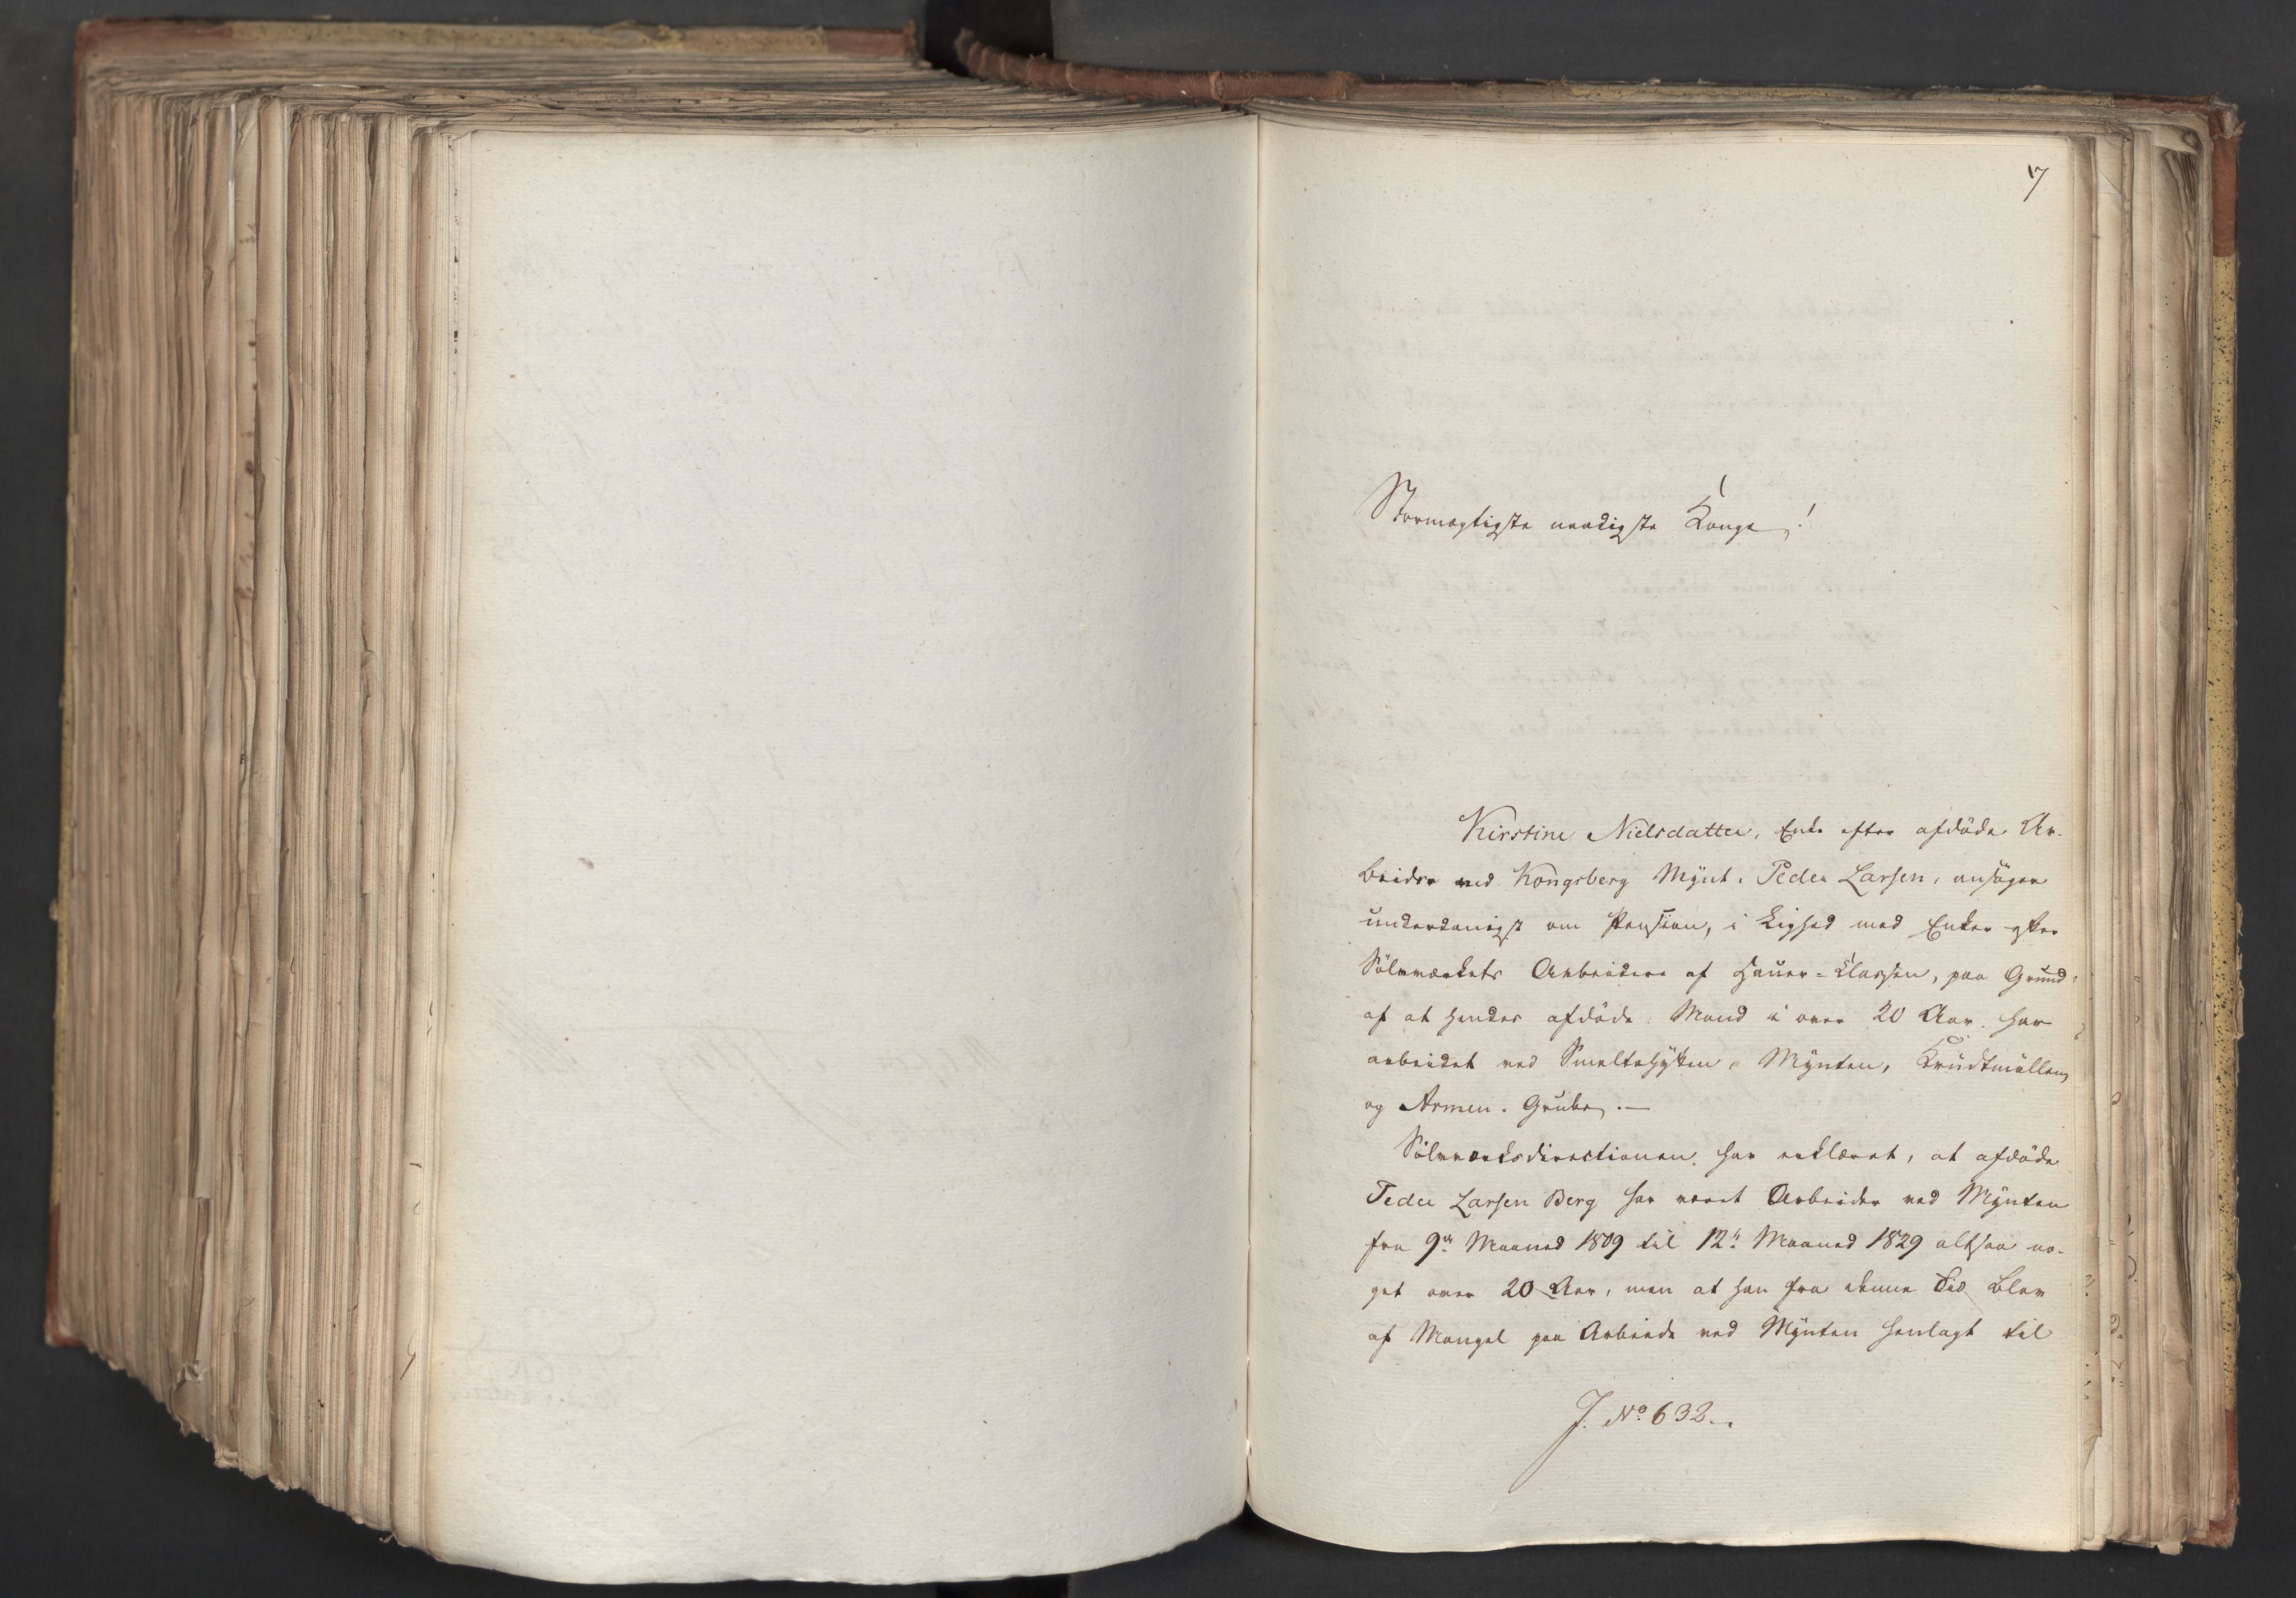 7
Stormægtigste naadigste Konge!
Kirstine Nielsdatter, Enke efter afdøde Ar-
beider ved Kongsberg Mÿnt, Peder Larsen, ansøger
underdanigst om Pension, i Lighed med Enker efter
Sölvværkets Arbeidere af Hauer-Klassen, paa Grund
af at hendes afdöde Mand i over 20 Aar har
arbeidet ved Smeltehÿtten, Mÿnten, Krudtmöllen
og Armen-Grube.—
Sölvværksdirectionen har erklæret, at afdöde
Peder Larsen Berg har været Arbeider ved Mÿnten
fra 9de Maaned 1809 til 12te Maaned 1829 altsaa no-
get over 20 Aar, men at han fra denne Tid blev
af Mangel paa Arbeide ved Mÿnten henlagt til
J. No 632.